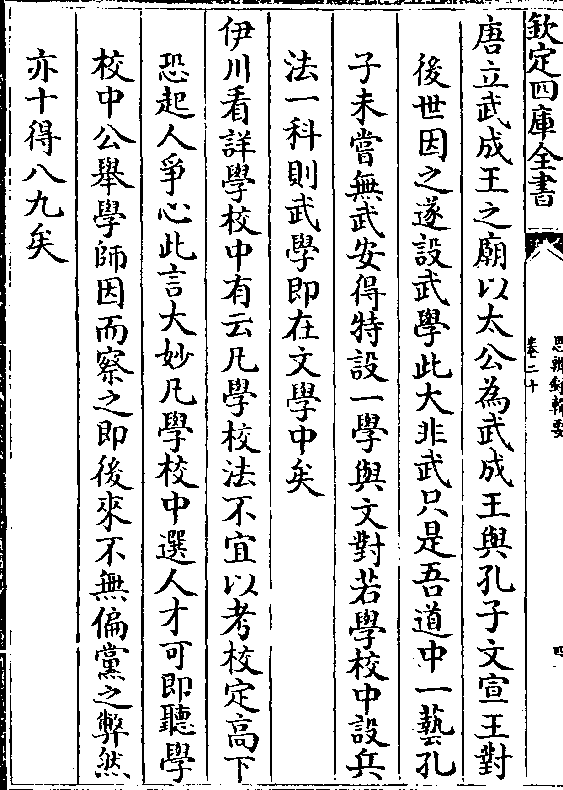 欽定四庫全書
思辨録輯要
卷二十
四
唐立武成王之廟以太公為武成王與孔子文宣王對
後世因之遂設武學此大非武只是吾道中一藝孔
子未嘗無武安得特設一學與文對若學校中設兵
法一科則武學即在文學中矣
伊川看詳學校中有云凡學校法不宜以考校定高下
恐起人爭心此言大妙凡學校中選人才可即聽學
校中公舉學師因而察之即後來不無偏黨之弊然
亦十得八九矣